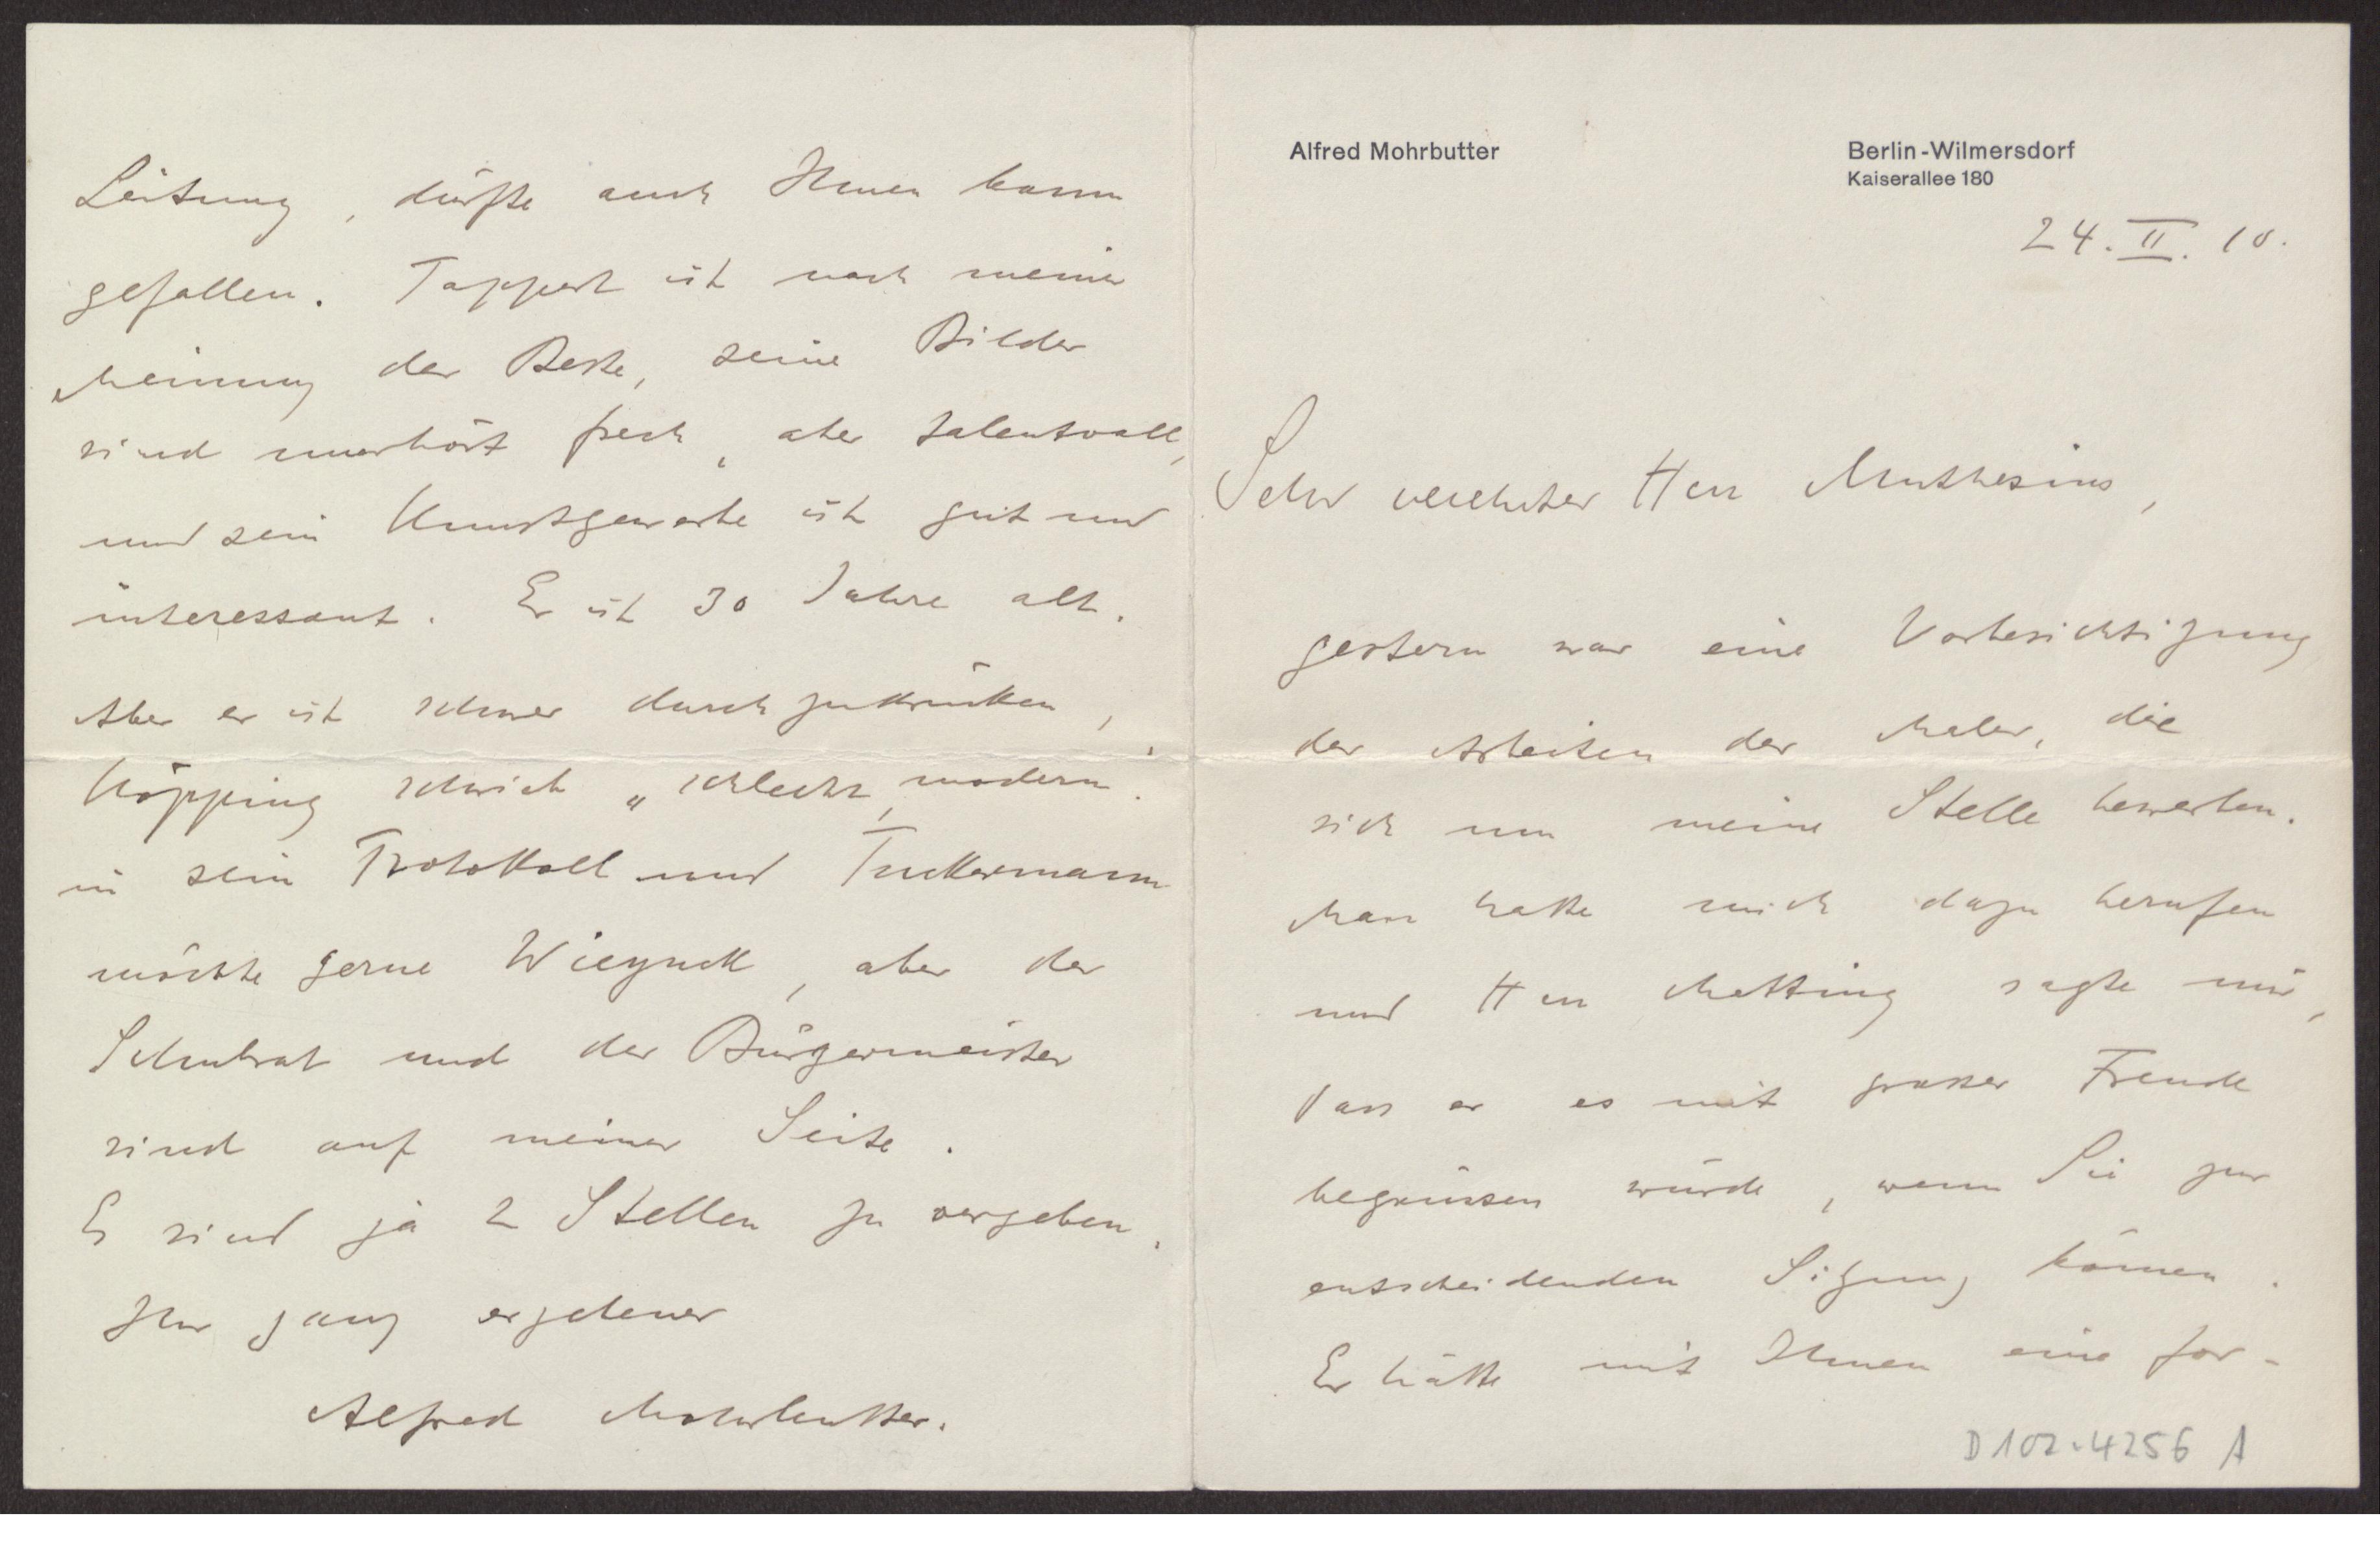 Alfred Mohrbutter
Berlin-Wilmersdorf
Kaiserallee 180
24. II. 10.
Sehr verehrter Herr Muthesius,
gestern war eine Vorbesichtigung
der Arbeiten der Maler, die
sich um meine Stelle bewerben.
Man hatte mich dazu berufen
und Herr Matting sagte mir,
dass er es mit grosser Freude
begrüssen würde, wenn Sie zur
entscheidenden Sitzung kämen.
Er hätte mit Ihnen eine for-
D102-4256 A
Leitung, dürfte auch Ihnen kaum
gefallen. Tappert ist nach meiner
Meinung der Beste, seine Bilder
sind unerhört frech, aber talentvoll,
und sein Kunstgewerbe ist gut und
interessant. Er ist 30 Jahre alt.
Aber er ist schwer durchzudrücken,
Köpping schrieb „schlecht, modern.
in sein Protokoll und Tuckermann
möchte gerne Wieynck, aber der
Schulrat und der Bürgermeister
sind auf meiner Seite.
Es sind ja 2 Stellen zu vergeben.
Ihr ganz ergebener
Alfred Mohrbutter.